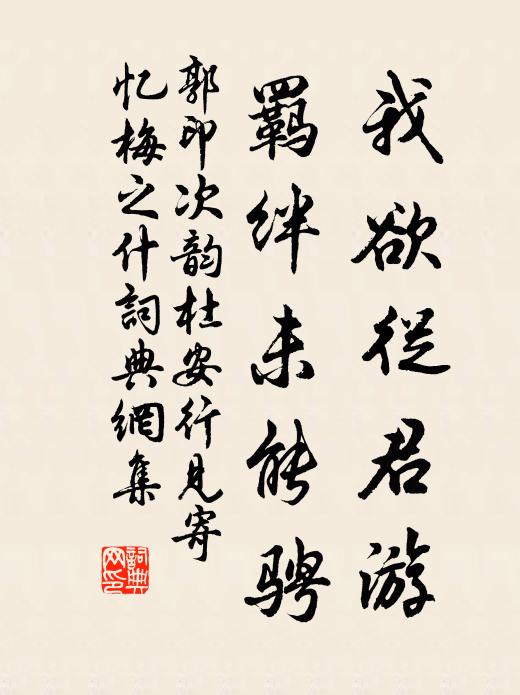 我欲從君游
羈绊未能骋
郭印次韵杜安行見寄
忆梅之什詞典網集
詞典
网印